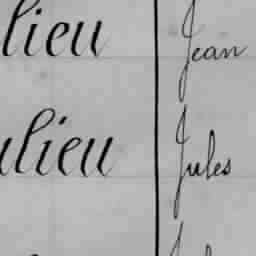 lieu Jean
ulieu Jules